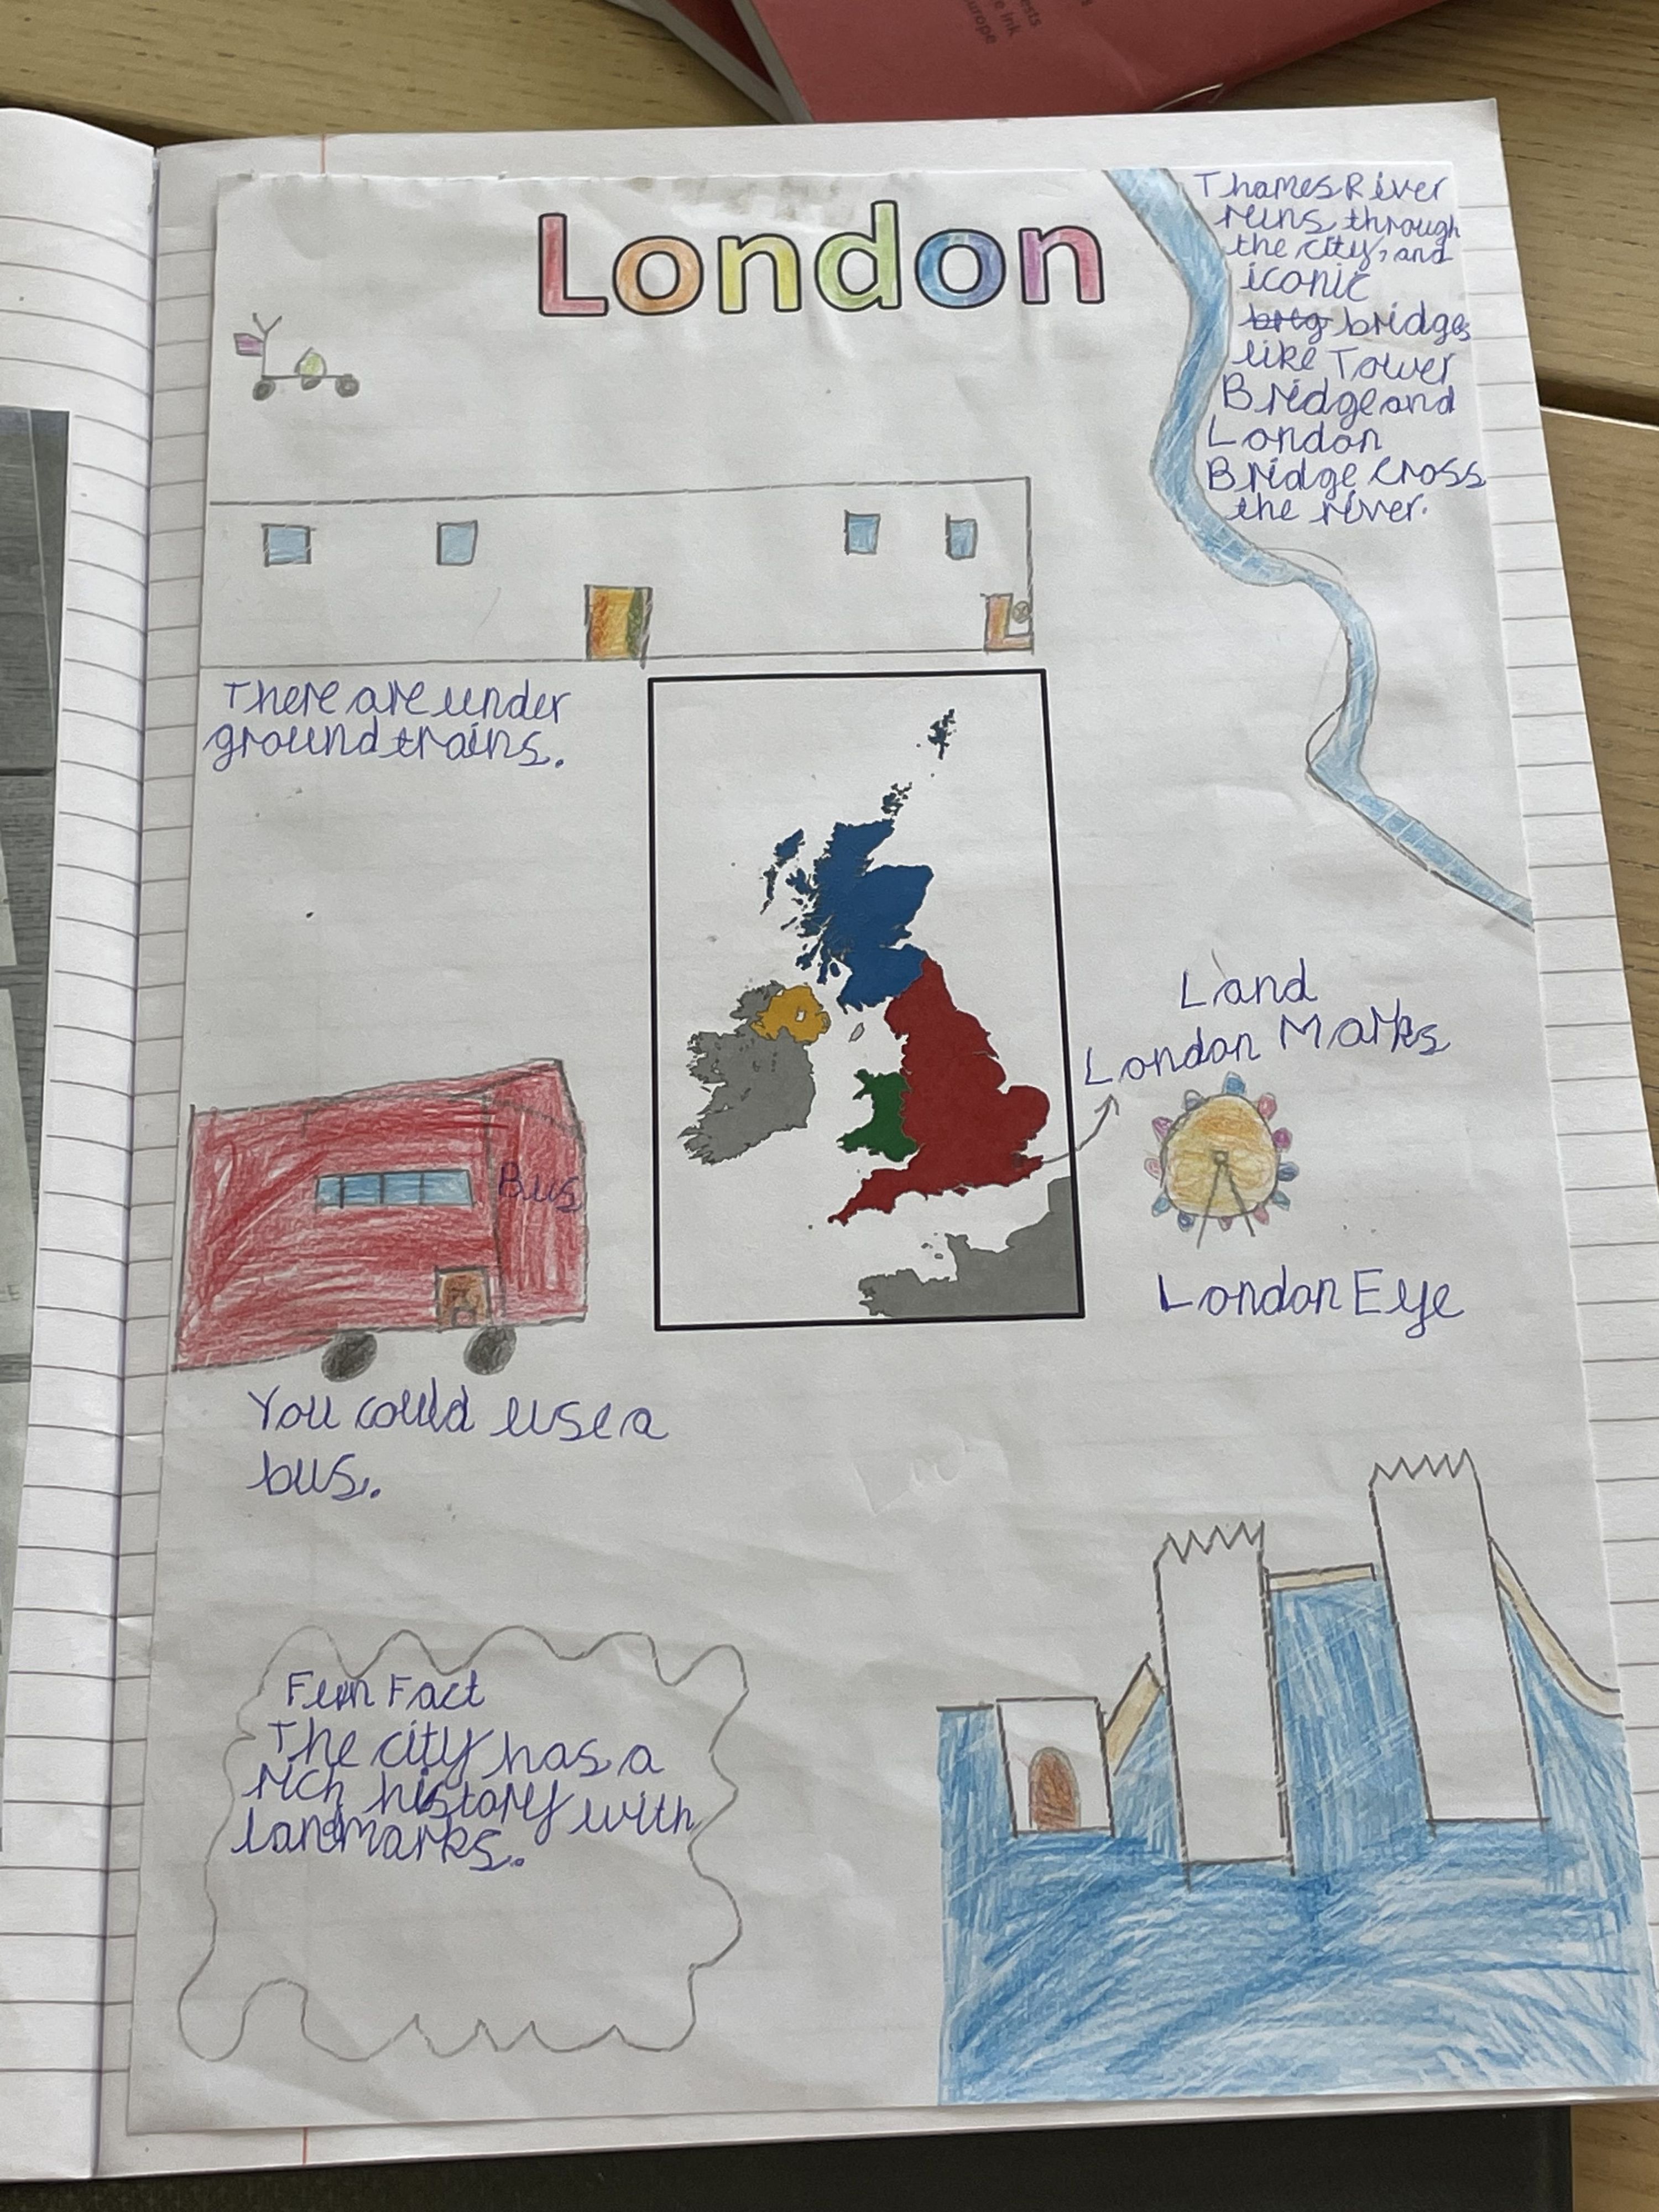 ests
e ink
urope
London
Thames River
runs through
the city, and
iconic
breg bridges
like Tower
Bridge and
London
Bridge cross
the river.
There are under
ground trains.
Land
London Marks
Bus
London Eye
You could use a
bus.
Fun Fact
The city has a
rich history with
landmarks.